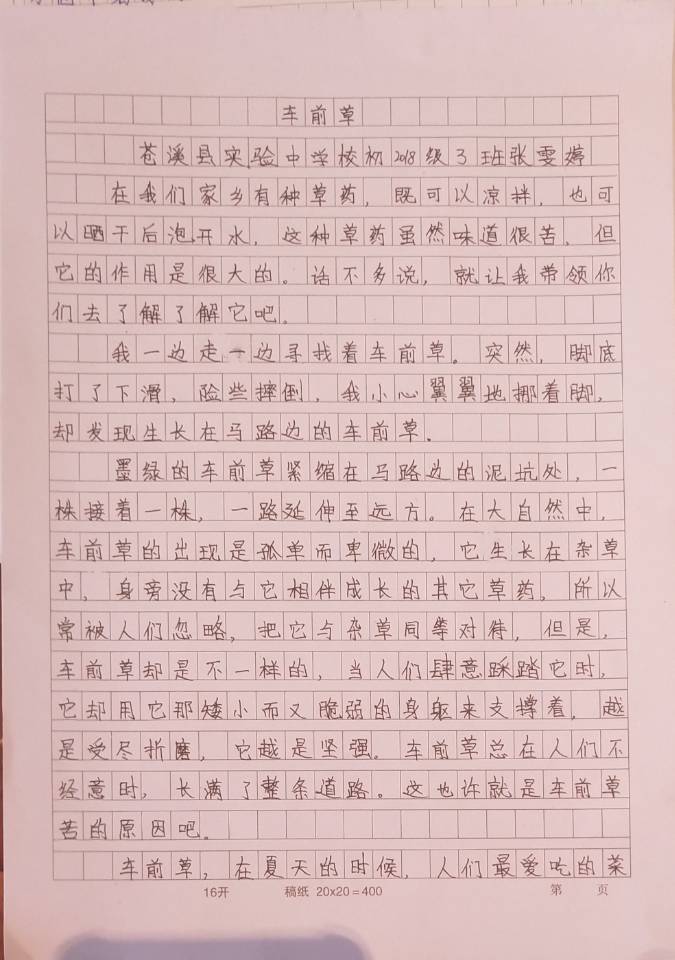 车前草
苍溪县实验中学校初2018级3班张雯婷
在我们家乡有种草药，既可以凉拌，也可
以晒干后泡开水，这种草药虽然味道很苦，但
它的作用是很大的。话不多说，就让我带领你
们去了解了解它吧。
我一边走一边寻找着车前草。突然，脚底
打了下滑，险些摔倒，我小心翼翼地挪着脚，
却发现生长在马路边的车前草。
墨绿的车前草紧缩在马路边的泥坑处，一
株接着一株，一路延伸至远方。在大自然中，
车前草的出现是孤单而卑微的，它生长在杂草
中，身旁没有与它相伴成长的其它草药，所以
常被人们忽略，把它与杂草同等对待，但是，
车前草却是不一样的，当人们肆意踩踏它时，
它却用它那矮小而又脆弱的身躯来支撑着，越
是受尽折磨，它越是坚强。车前草总在人们不
经意时，长满了整条道路。这也许就是车前草
苦的原因吧。
车前草，在夏天的时候，人们最爱吃的菜
16开 稿纸 20×20=400 第 页